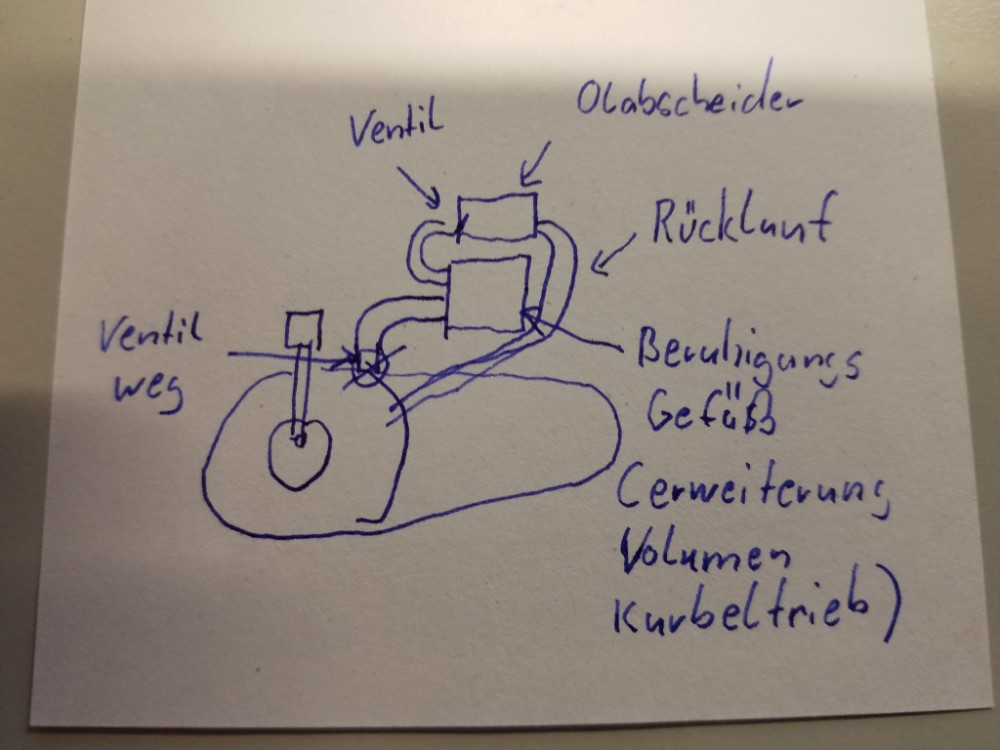 Ventil
Ölabscheider
Rücklauf
Ventil
weg
Beruhigungs
Gefüß
(erweiterung
Volumen
Kurbeltrieb)